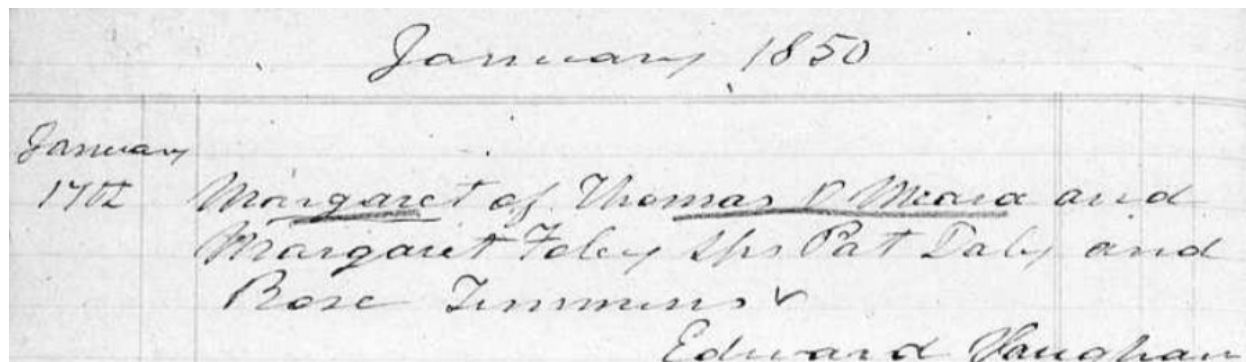 January 1850
January
17th Margaret of Thomas O Meara and
Margaret Foley sps Pat Daly and
Rose Timmins
Edward Vaughan